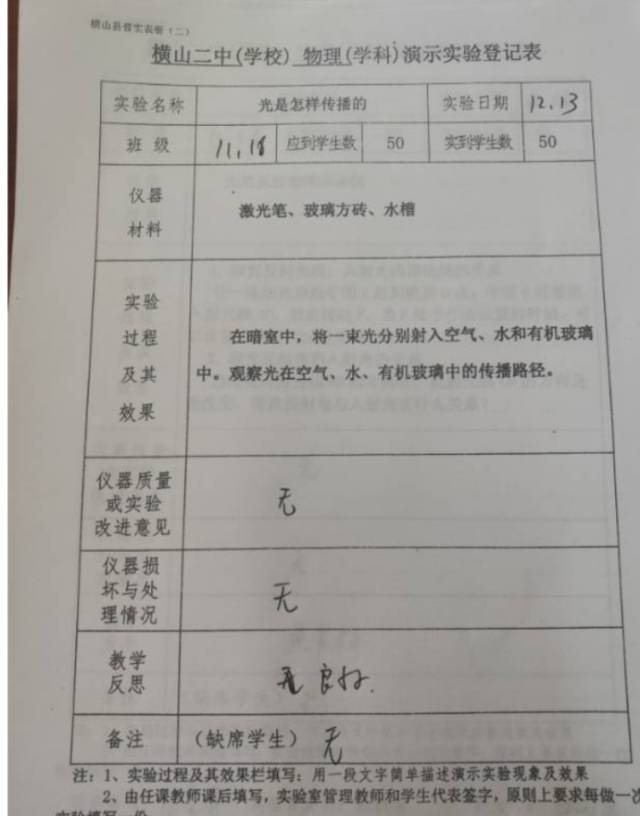 横山县普实表册（二）
横山二中(学校) 物理(学科)演示实验登记表
实验名称 光是怎样传播的 实验日期 12.13
班 级 11,18 应到学生数 50 实到学生数 50
仪器
材料
激光笔、玻璃方砖、水槽
实验
过程
及其
效果
在暗室中，将一束光分别射入空气、水和有机玻璃
中。观察光在空气、水、有机玻璃中的传播路径。
仪器质量
或实验
改进意见
无
仪器损
坏与处
理情况
无
教学
反思
良好.
备注 （缺席学生） 无
注：1、实验过程及其效果栏填写：用一段文字简单描述演示实验现象及效果
2、由任课教师课后填写，实验室管理教师和学生代表签字，原则上要求每做一次